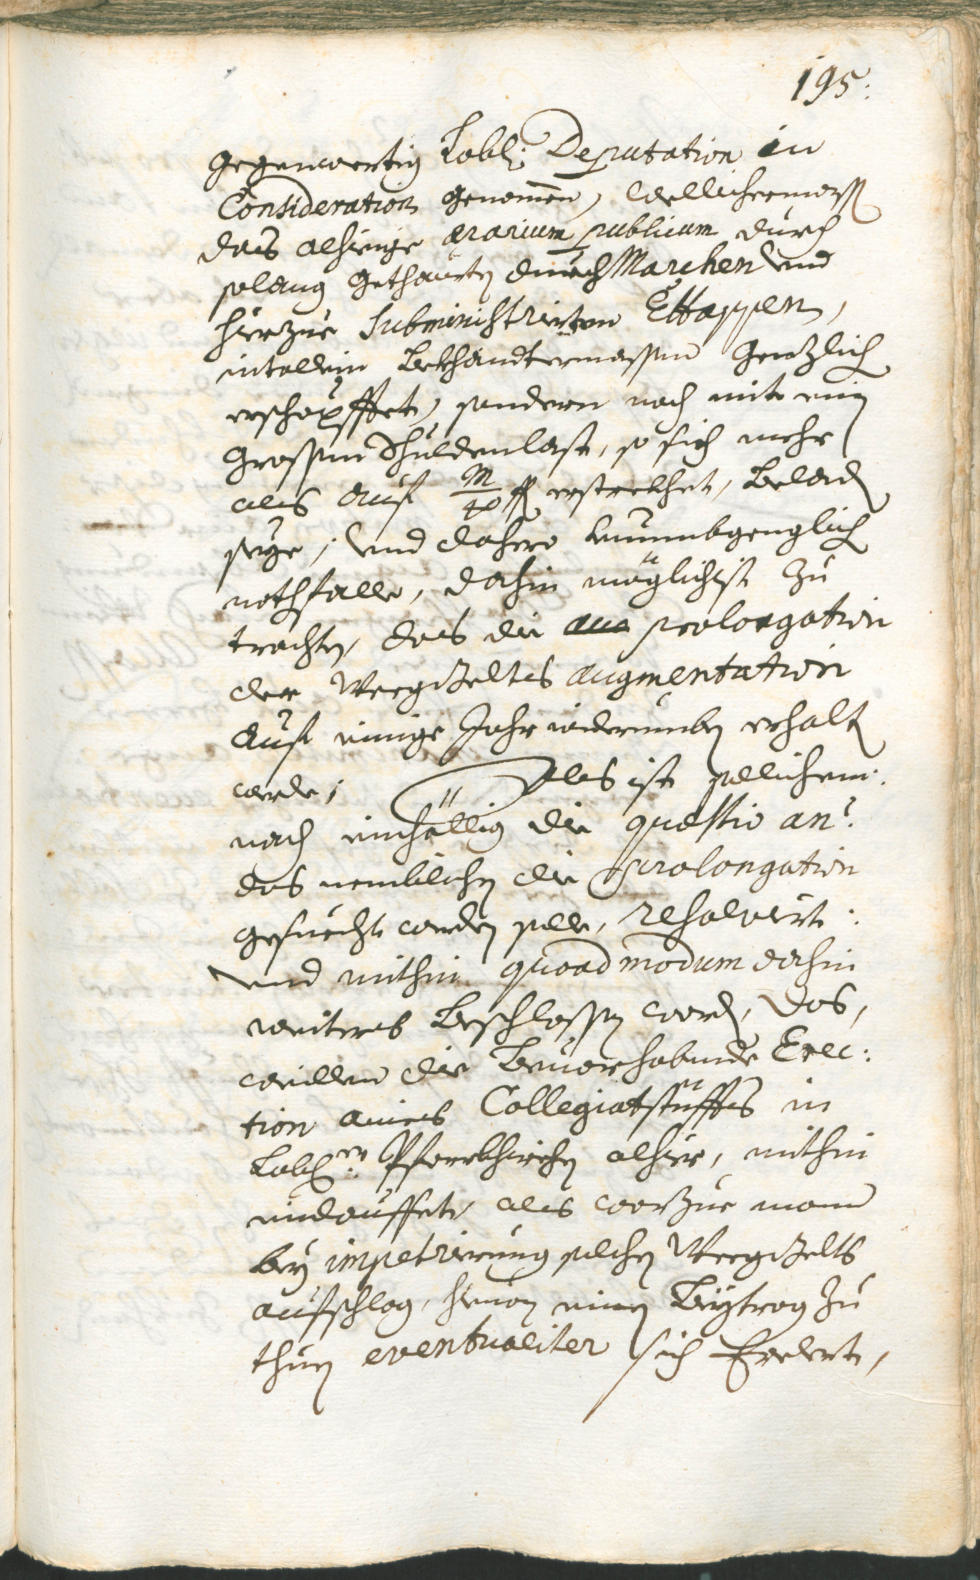 195:
gegenwertig Lobl: Deputation in
Consideration genomen, wellichermass
das alhiesige ærarium publicum durch
solang gethaurte durch Marchen und
hierzue subministrierten Ettappen,
nit allein bekhandtermassen gentzlich
erschöpffet, sondern noch mit ein
grossen Schuldenlast, so sich mehr
als auf M/40 f erstrekhet, beladen
seye; und dahero unumbgenglich
nothfalle, dahin möglichist zu
trachten, das die prolongation
der Weegzeltes augmentation
auf einige Jahr widerumben erhalten
werde; Als ist sollichem
nach einhellig die quæstio an?
das nemblichen die prolongation
gesuecht werden solle, resolviert:
und mithin quoad modum dahin
weiteres beschlossen worden, das,
weillen die bevorhabende Erec:
tion aines Collegiatstüffts in
Lobl:en Pfarrkhirchen alhier, mithin
undauffet, als worzue mann
bey impetrierung solchen Weegzelts
aufschlag, hievon einen Beytrag zu
thuen eventualiter sich Erclert,